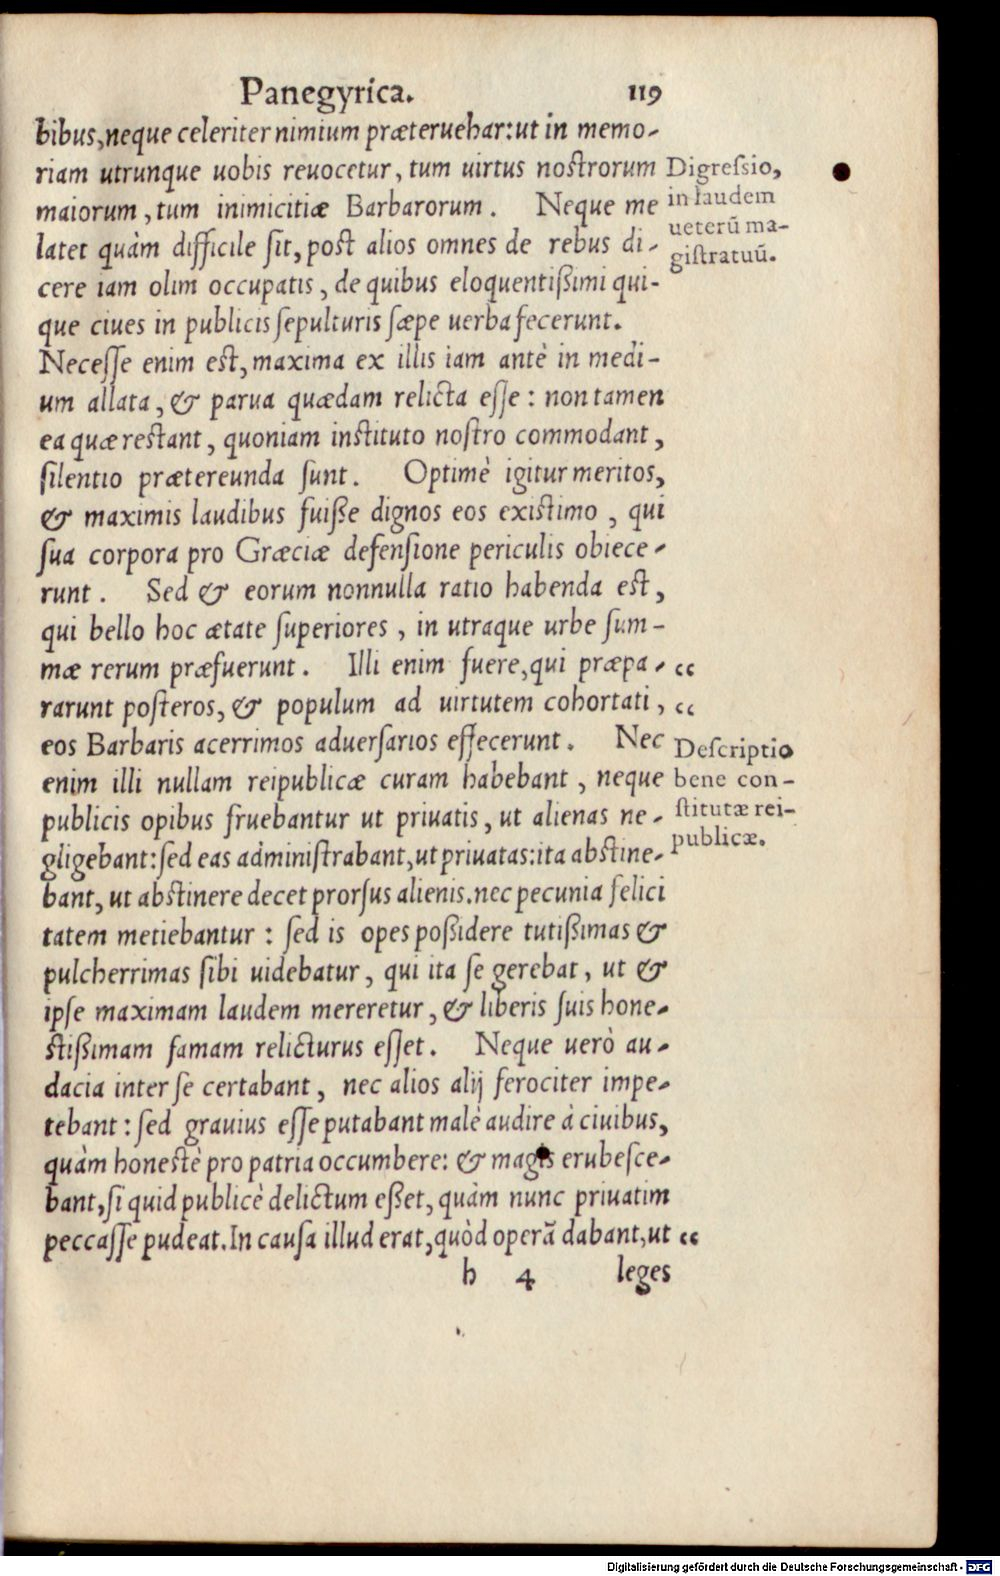 Panegyrica. 119
bibus,neque celeriter nimium præteruehar:ut in memo-
riam utrunque uobis reuocetur, tum uirtus noſtrorum
maiorum, tum inimicitiæ Barbarorum. Neque me
latet quàm difficile ſit, poſt alios omnes de rebus di-
cere iam olim occupatis, de quibus eloquentißimi qui-
que ciues in publicis ſepulturis ſæpe uerba fecerunt.
Neceſſe enim eſt, maxima ex illis iam antè in medi-
um allata, & parua quædam relicta eſſe: non tamen
ea quæ reſtant, quoniam inſtituto noſtro commodant,
ſilentio prætereunda ſunt. Optimè igitur meritos,
& maximis laudibus fuiße dignos eos exiſtimo, qui
ſua corpora pro Græciæ defenſione periculis obiece-
runt. Sed & eorum nonnulla ratio habenda eſt,
qui bello hoc ætate ſuperiores, in utraque urbe ſum-
mæ rerum præfuerunt. Illi enim fuere, qui præpa- “
rarunt poſteros, & populum ad uirtutem cohortati, “
eos Barbaris acerrimos aduerſarios effecerunt. Nec
enim illi nullam reipublicæ curam habebant, neque
publicis opibus fruebantur ut priuatis, ut alienas ne-
gligebant: ſed eas adminiſtrabant, ut priuatas: ita abſtine-
bant, ut abſtinere decet prorſus alienis. nec pecunia felici
tatem metiebantur: ſed is opes poßidere tutißimas &
pulcherrimas ſibi uidebatur, qui ita ſe gerebat, ut &
ipſe maximam laudem mereretur, & liberis ſuis hone-
ſtißimam famam relicturus eſſet. Neque uerò au-
dacia inter ſe certabant, nec alios alij ferociter impe-
tebant: ſed grauius eſſe putabant malè audire à ciuibus,
quàm honeſtè pro patria occumbere: & magis erubeſce-
bant, ſi quid publicè delictum eßet, quàm nunc priuatim
peccaſſe pudeat. In cauſa illud erat, quòd operā dabant, ut “
h 4 leges
Digreſsio,
in laudem
ueterū ma-
giſtratuū.
Deſcriptio
bene con-
ſtitutæ rei-
publicæ.
Digitalisierung gefördert durch die Deutsche Forschungsgemeinschaft - DFG